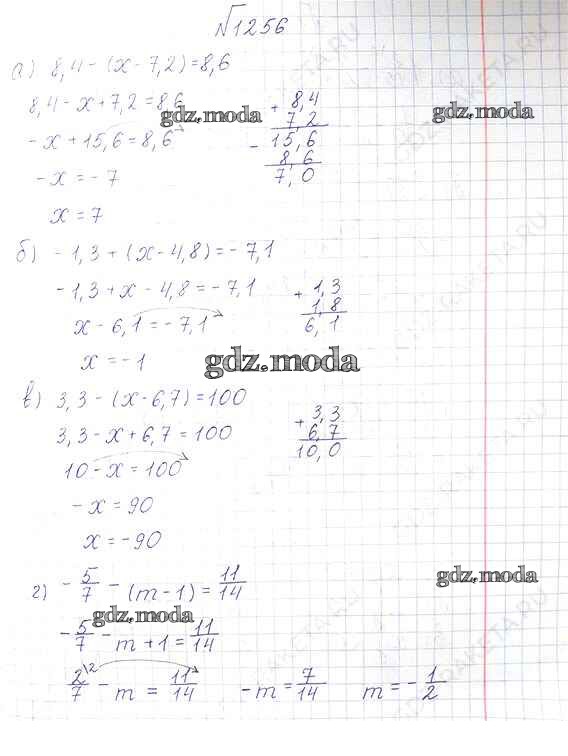 √1256
а) 8,4 - (x - 7,2) = 8,6
8,4 - x + 7,2 = 8,6
-x + 15,6 = 8,6
-x = -7
x = 7
+ 8,4
7,2
- 15,6
8,6
7,0
gdz.moda
gdz.moda
б) -1,3 + (x - 4,8) = -7,1
-1,3 + x - 4,8 = -7,1
x - 6,1 = -7,1
x = -1
+ 1,3
1,8
6,1
gdz.moda
в) 3,3 - (x - 6,7) = 100
3,3 - x + 6,7 = 100
10 - x = 100
-x = 90
x = -90
+ 3,3
6,7
10,0
г) - 5/7 - (m - 1) = 11/14
gdz.moda
gdz.moda
- 5/7 - m + 1 = 11/14
2\2/7 - m = 11/14 -m = 7/14 m = - 1/2